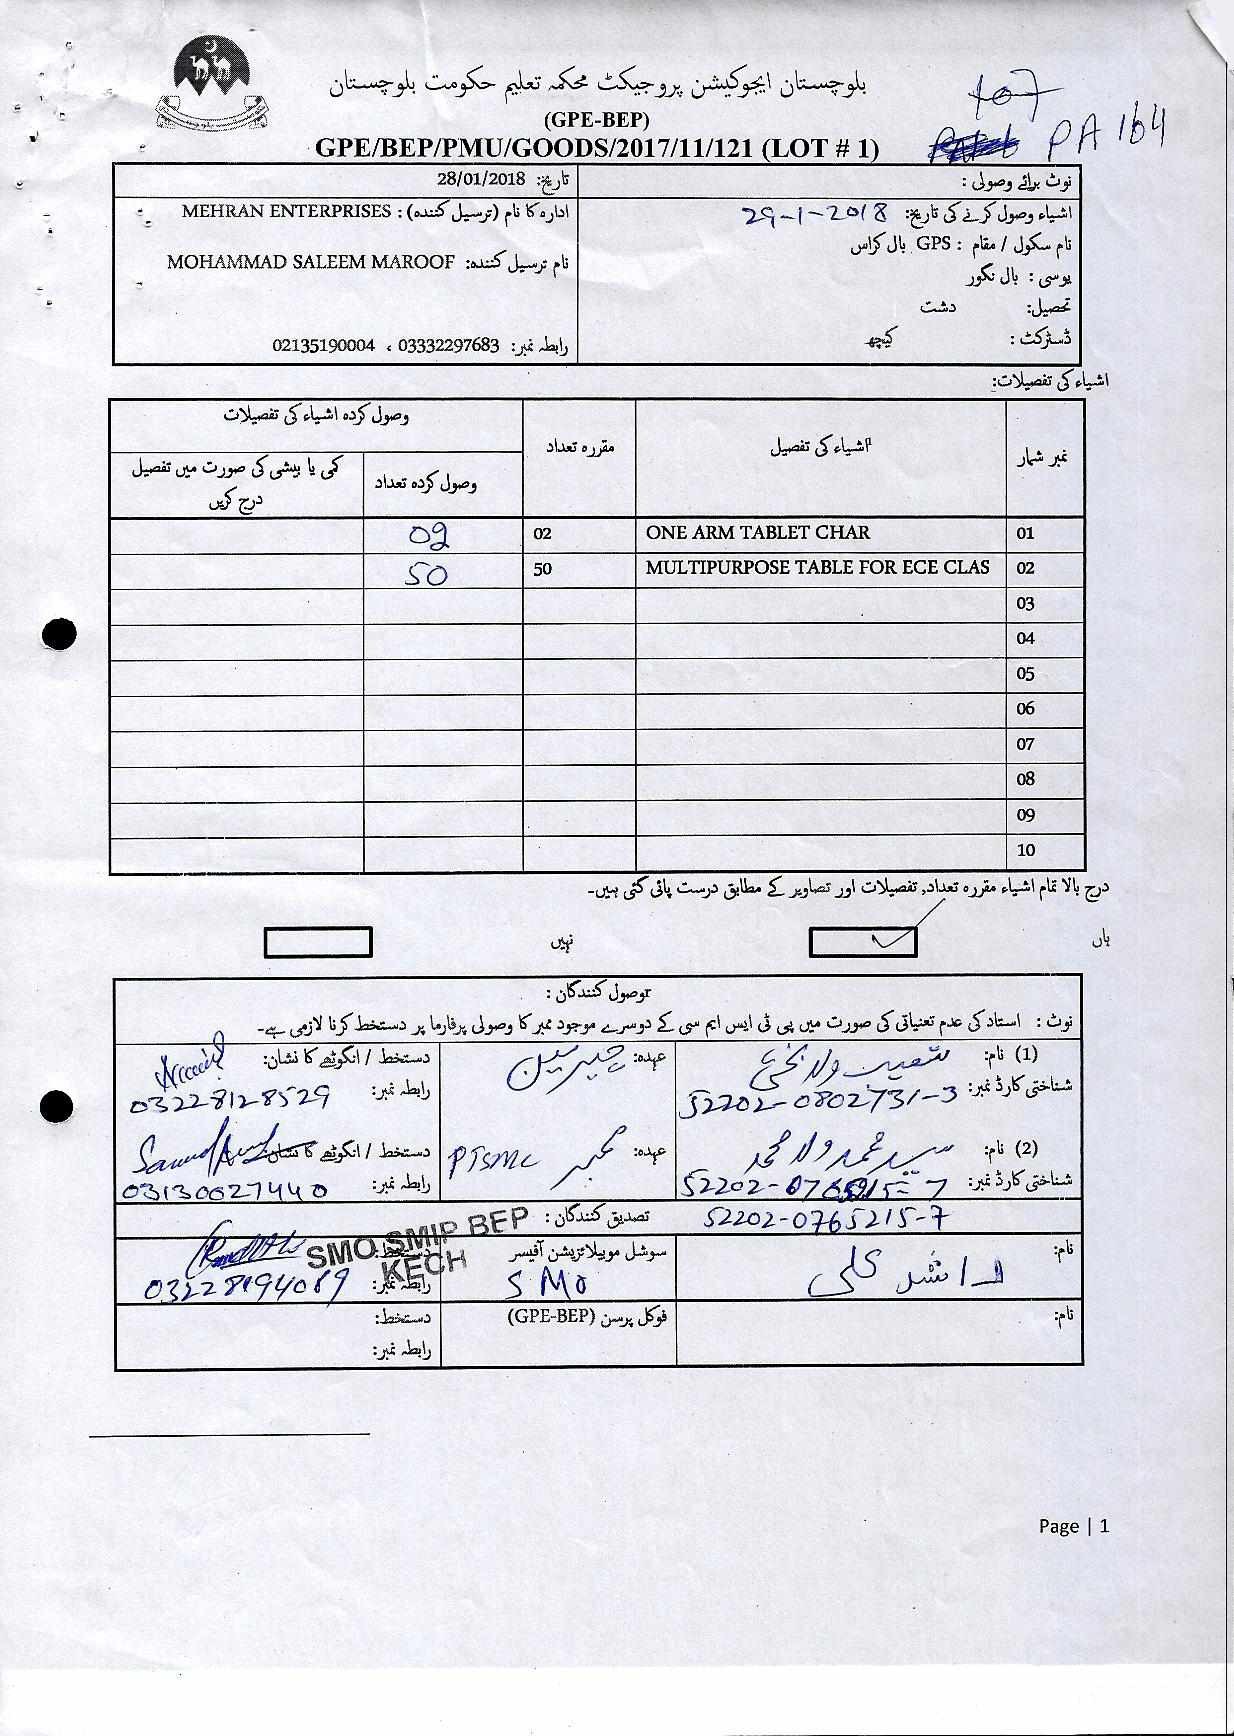 بلوچستان ایجوکیشن پروجیکٹ محکمہ تعلیم حکومت بلوچستان
(GPE-BEP)
GPE/BEP/PMU/GOODS/2017/11/121 (LOT # 1)
107
PA 164
نوٹ برائے وصولی :
تاریخ: 28/01/2018
اشیاء وصول کرنے کی تاریخ: 29-1-2018
ادارہ کا نام (ترسیل کنندہ) : MEHRAN ENTERPRISES
نام سکول / مقام : GPS بال کراس
نام ترسیل کنندہ: MOHAMMAD SALEEM MAROOF
یوسی : بال نگور
تحصیل: دشت
ڈسٹرکٹ : کیچ
رابطہ نمبر: 03332297683 ، 02135190004
اشیاء کی تفصیلات:
نمبر شمار
اشیاء کی تفصیل
مقررہ تعداد
وصول کردہ اشیاء کی تفصیلات
وصول کردہ تعداد
کمی یا بیشی کی صورت میں تفصیل درج کریں
01 ONE ARM TABLET CHAR 02 02
02 MULTIPURPOSE TABLE FOR ECE CLAS 50 50
03
04
05
06
07
08
09
10
درج بالا تمام اشیاء مقررہ تعداد, تفصیلات اور تصاویر کے مطابق درست پائی گئی ہیں۔
ہاں ✓ نہیں
وصول کنندگان :
نوٹ : استاد کی عدم تعنیاتی کی صورت میں پی ٹی ایس ایم سی کے دوسرے موجود ممبر کا وصولی پرفارما پر دستخط کرنا لازمی ہے۔
(1) نام: شعیب ولد عہدہ: چیرمین دستخط / انگوٹھے کا نشان:
شناختی کارڈ نمبر: 52202-0802731-3 رابطہ نمبر: 03228128529
(2) نام: ولد محمد عہدہ: ممبر PTSMC دستخط / انگوٹھے کا نشان:
شناختی کارڈ نمبر: 52202- رابطہ نمبر: 03130027440
تصدیق کنندگان : 52202-0765215-7
نام: راشد علی سوشل موبیلائزیشن آفیسر SMO دستخط:
رابطہ نمبر: 03228194089
SMO SMIP BEP
KECH
نام: فوکل پرسن (GPE-BEP) دستخط:
رابطہ نمبر:
Page | 1